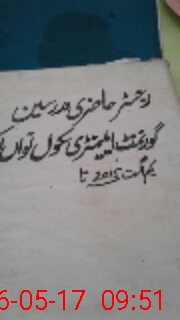 رجسٹر حاضری مدرسین
گورنمنٹ ایلیمنٹری سکول
یکم اگست 2015 تا
6-05-17 09:51